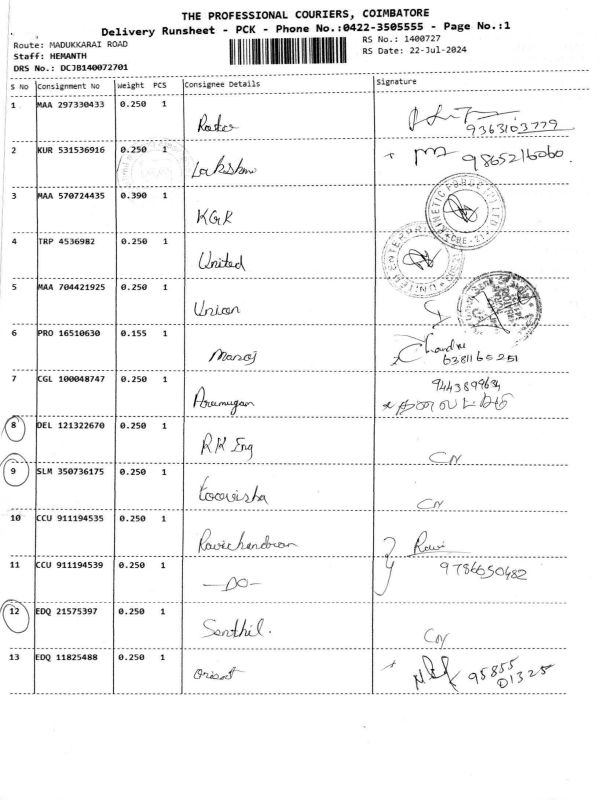 THE PROFESSIONAL COURIERS, COIMBATORE
Delivery Runsheet - PCK - Phone No.:0422-3505555 - Page No.:1
Route: MADUKKARAI ROAD
RS No.: 1400727
Staff: HEMANTH
RS Date: 22-Jul-2024
DRS No.: DCJB140072701
S No Consignment No Weight PCS Consignee Details Signature
1 MAA 297330433 0.250 1
9363103779
2 KUR 531536916 0.250 1 9865216060
3 MAA 570724435 0.390 1 KGK
4 TRP 4536982 0.250 1 United
5 MAA 704421925 0.250 1 Union
6 PRO 16510630 0.155 1 Manoj Chandru
6381165251
7 CGL 100048747 0.250 1 Arumugam 9443899634
8 DEL 121322670 0.250 1 RK Eng CN
9 SLM 350736175 0.250 1 CN
10 CCU 911194535 0.250 1 Ravichandran Ravi
11 CCU 911194539 0.250 1 -DO- 9786650482
12 EDQ 21575397 0.250 1 Senthil. CN
13 EDQ 11825488 0.250 1 Orient 95855
01325